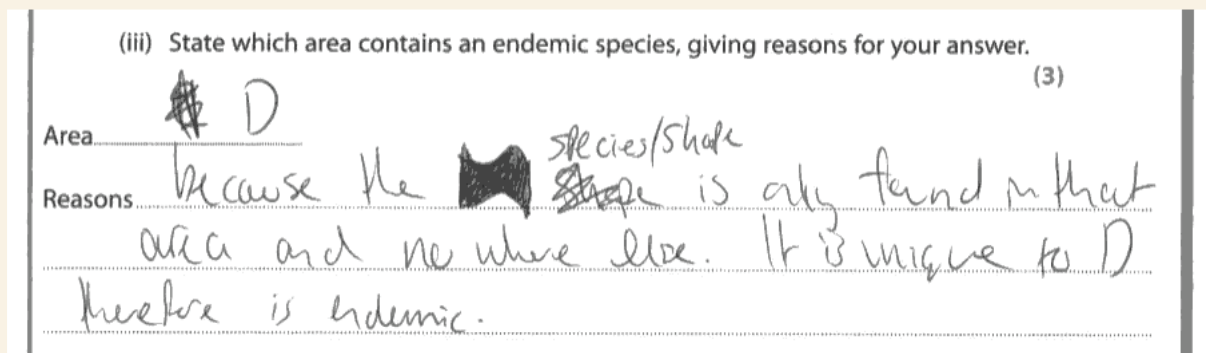 (iii) State which area contains an endemic species, giving reasons for your answer.
(3)
Area D
species/shape
Reasons because the is only found in that
area and no where else. It is unique to D
therefore is endemic.